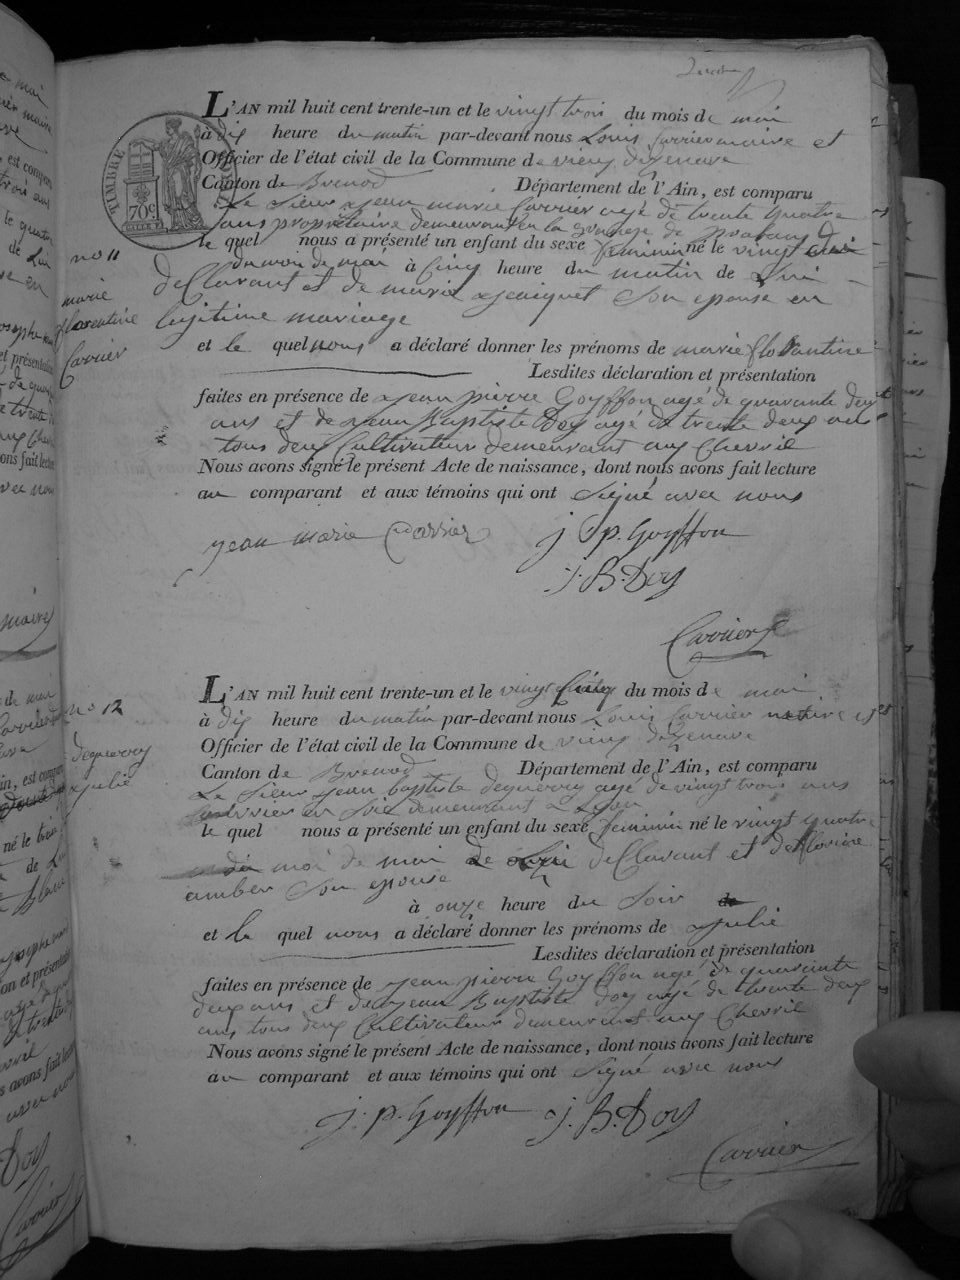 TIMBRE
70c
L'AN mil huit cent trente-un et le vingt trois du mois de mai
à dix heure du matin par-devant nous Louis Carrier maire et
Officier de l'état civil de la Commune de vieu dizenave
Canton de Brenod Département de l'Ain, est comparu
Le Sieur Jean marie Carrier agé de trente quatre
ans propriétaire demeurant en la grange de
le quel nous a présenté un enfant du sexe feminin né le vingt
du moi de mai à Cinq heure du matin de Lui
no 11
marie
florentine
Carrier
declarant et de marie Jacquet Son epouse en
legitime mariage
et le quel nous a déclaré donner les prénoms de marie florantine
Lesdites déclaration et présentation
faites en présence de Jean pierre Goyffon agé de quarante deux
ans et de Jean Baptiste Doy agé de trente deux ans
tous deux Cultivateur demeurant aux Chevril
Nous avons signé le présent Acte de naissance, dont nous avons fait lecture
au comparant et aux témoins qui ont Signé avec nous
jean marie Carrier j p. Goyffon
j. B. Doy
Carrier
L'AN mil huit cent trente-un et le vingt Cinq du mois de mai
no 12
à dix heure du matin par-devant nous Louis Carrier maire et
Officier de l'état civil de la Commune de vieu dizenave
deguerry
Julie
Canton de Brenod Département de l'Ain, est comparu
Le Sieur Jean baptiste deguerry agé de vingt trois ans
ouvrier en Soie demeurant a Lyon
le quel nous a présenté un enfant du sexe feminin né le vingt quatre
du moi de mai de Lui declarant et de floriene
amber Son epouse
à onze heure du Soir
et le quel nous a déclaré donner les prénoms de Julie
Lesdites déclaration et présentation
faites en présence de Jean pierre Goyffon agé de quarante
deux ans et de Jean Baptiste Doy agé de trente deux
ans tous deux Cultivateur demeurant aux Chevril
Nous avons signé le présent Acte de naissance, dont nous avons fait lecture
au comparant et aux témoins qui ont Signé avec nous
j. p. Goyffon j. B. Doy
Carrier